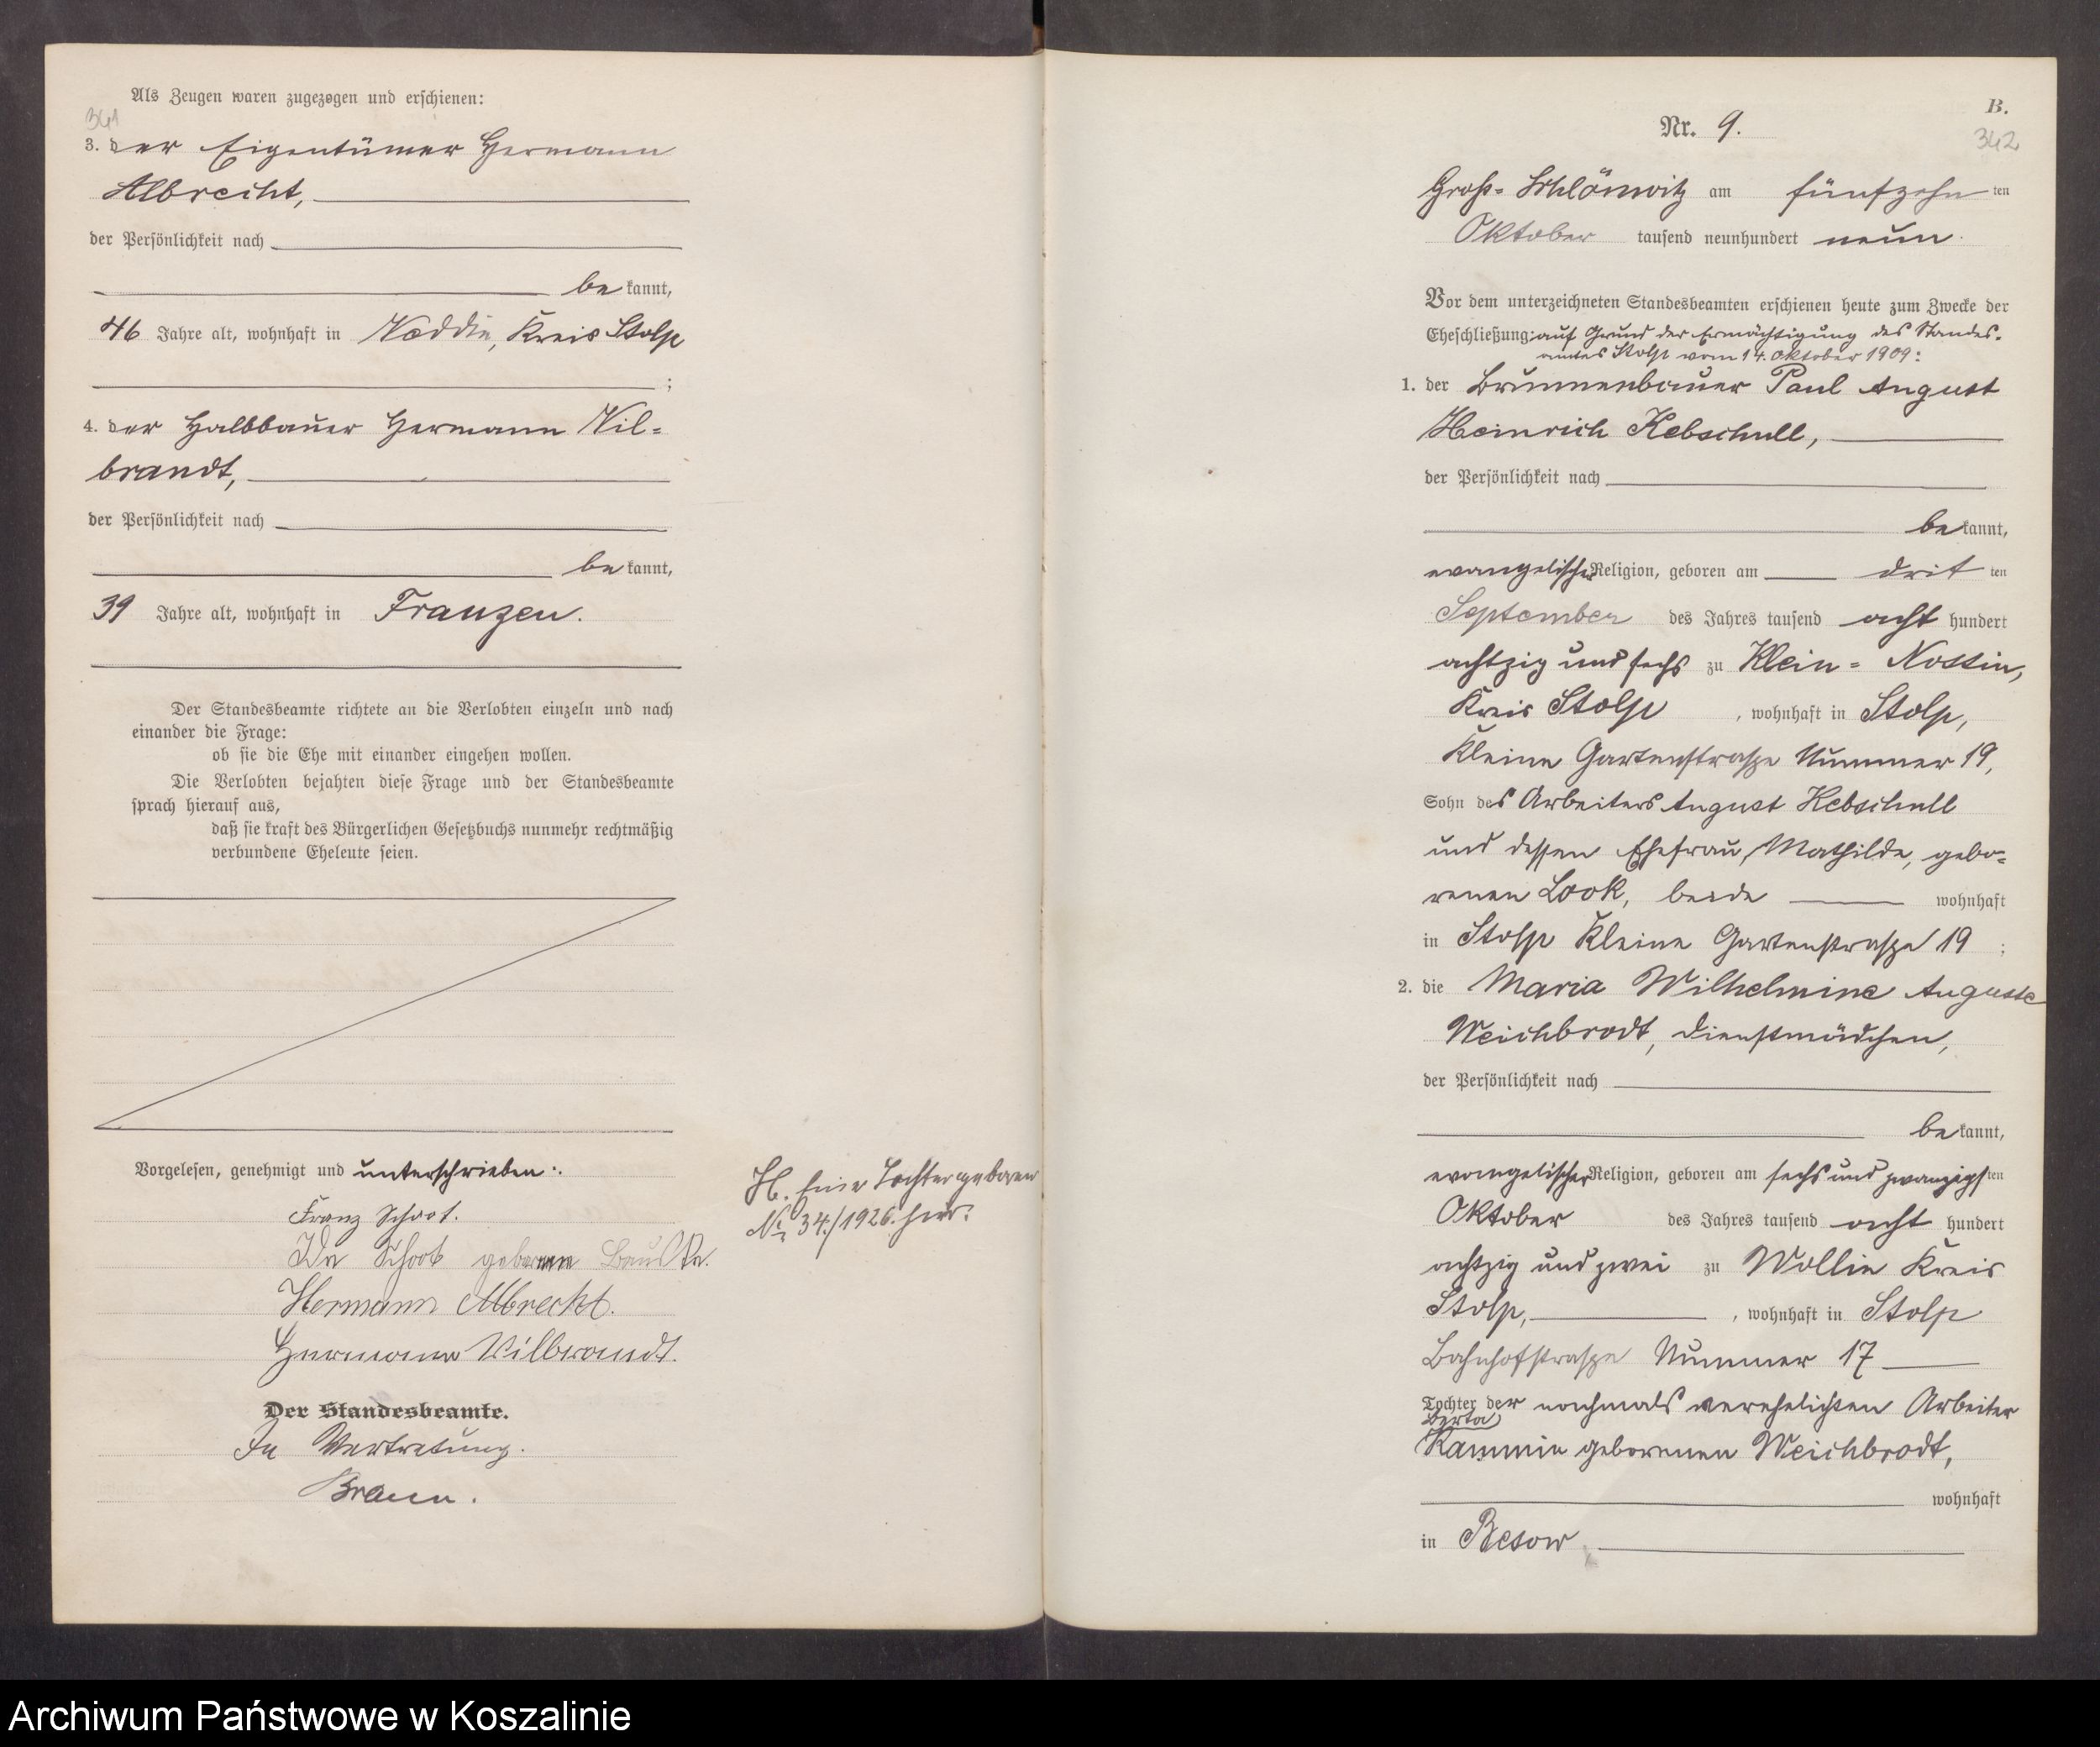 Als Zeugen waren zugezogen und erschienen:
341
3. der Eigentümer Hermann
Albrecht,
der Persönlichkeit nach
be kannt,
46 Jahre alt, wohnhaft in Noddin, Kreis Stolp
;
4. der Halbbauer Hermann Vil=
brandt,
der Persönlichkeit nach
be kannt,
39 Jahre alt, wohnhaft in Franzen.
Der Standesbeamte richtete an die Verlobten einzeln und nach
einander die Frage:
ob sie die Ehe mit einander eingehen wollen.
Die Verlobten bejahten diese Frage und der Standesbeamte
sprach hierauf aus,
daß sie kraft des Bürgerlichen Gesetzbuchs nunmehr rechtmäßig
verbundene Eheleute seien.
Vorgelesen, genehmigt und unterschrieben:
Franz Schoot.
Ida Schoot geborene
Hermann Albrecht.
Hermann Vilbrandt.
Der Standesbeamte.
In Vertretung.
Braun.
H. Eine Tochter geboren
No 34./1926. hier.
B.
Nr. 9.
342
Groß-Schlönwitz am fünfzehn ten
Oktober tausend neunhundert neun
Vor dem unterzeichneten Standesbeamten erschienen heute zum Zwecke der
Eheschließung: auf Grund der Ermächtigung des Standes-
amtes Stolp vom 14. Oktober 1909:
1. der Brunnenbauer Paul August
Heinrich Kebschull,
der Persönlichkeit nach
be kannt,
evangelischer Religion, geboren am drit ten
September des Jahres tausend acht hundert
achtzig und sechs zu Klein = Nossin,
Kreis Stolp , wohnhaft in Stolp,
Kleine Gartenstraße Nummer 19,
Sohn des Arbeiters August Kebschull
und dessen Ehefrau, Mathilde, gebo=
renen Look, beide wohnhaft
in Stolp Kleine Gartenstraße 19 ;
2. die Maria Wilhelmine Auguste
Weichbrodt, Dienstmädchen,
der Persönlichkeit nach
be kannt,
evangelischer Religion, geboren am sechs und zwanzigsten
Oktober des Jahres tausend acht hundert
achtzig und zwei zu Wollin Kreis
Stolp, , wohnhaft in Stolp
Bahnhofstraße Nummer 17
Tochter der nochmals verehelichten Arbeiter
Berta
Kammin geborenen Weichbrodt,
wohnhaft
in Besow
Archiwum Państwowe w Koszalinie